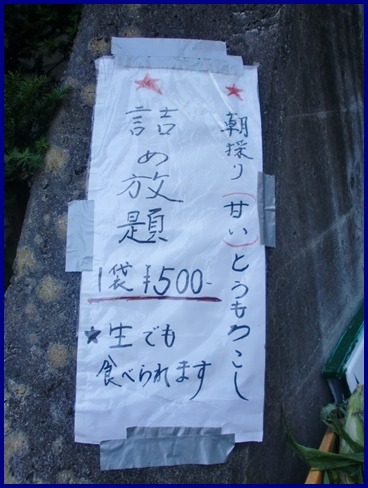 ★朝採り(甘い)とうもろこし
★詰め放題
1袋 ¥500-
★生でも
食べられます